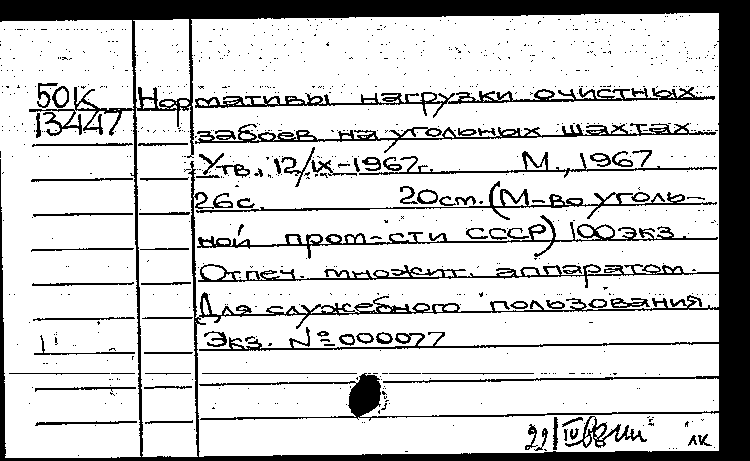 50К Нормативы нагрузки очистных
13447 забоев на угольных шахтах
Утв., 12/IX-1967г. М., 1967.
26с. 20см. (М-во уголь-
ной пром-сти СССР) 100экз.
Отпеч. множит. аппаратом.
Для служебного пользования
Экз. № 000077
22/IV ЛК